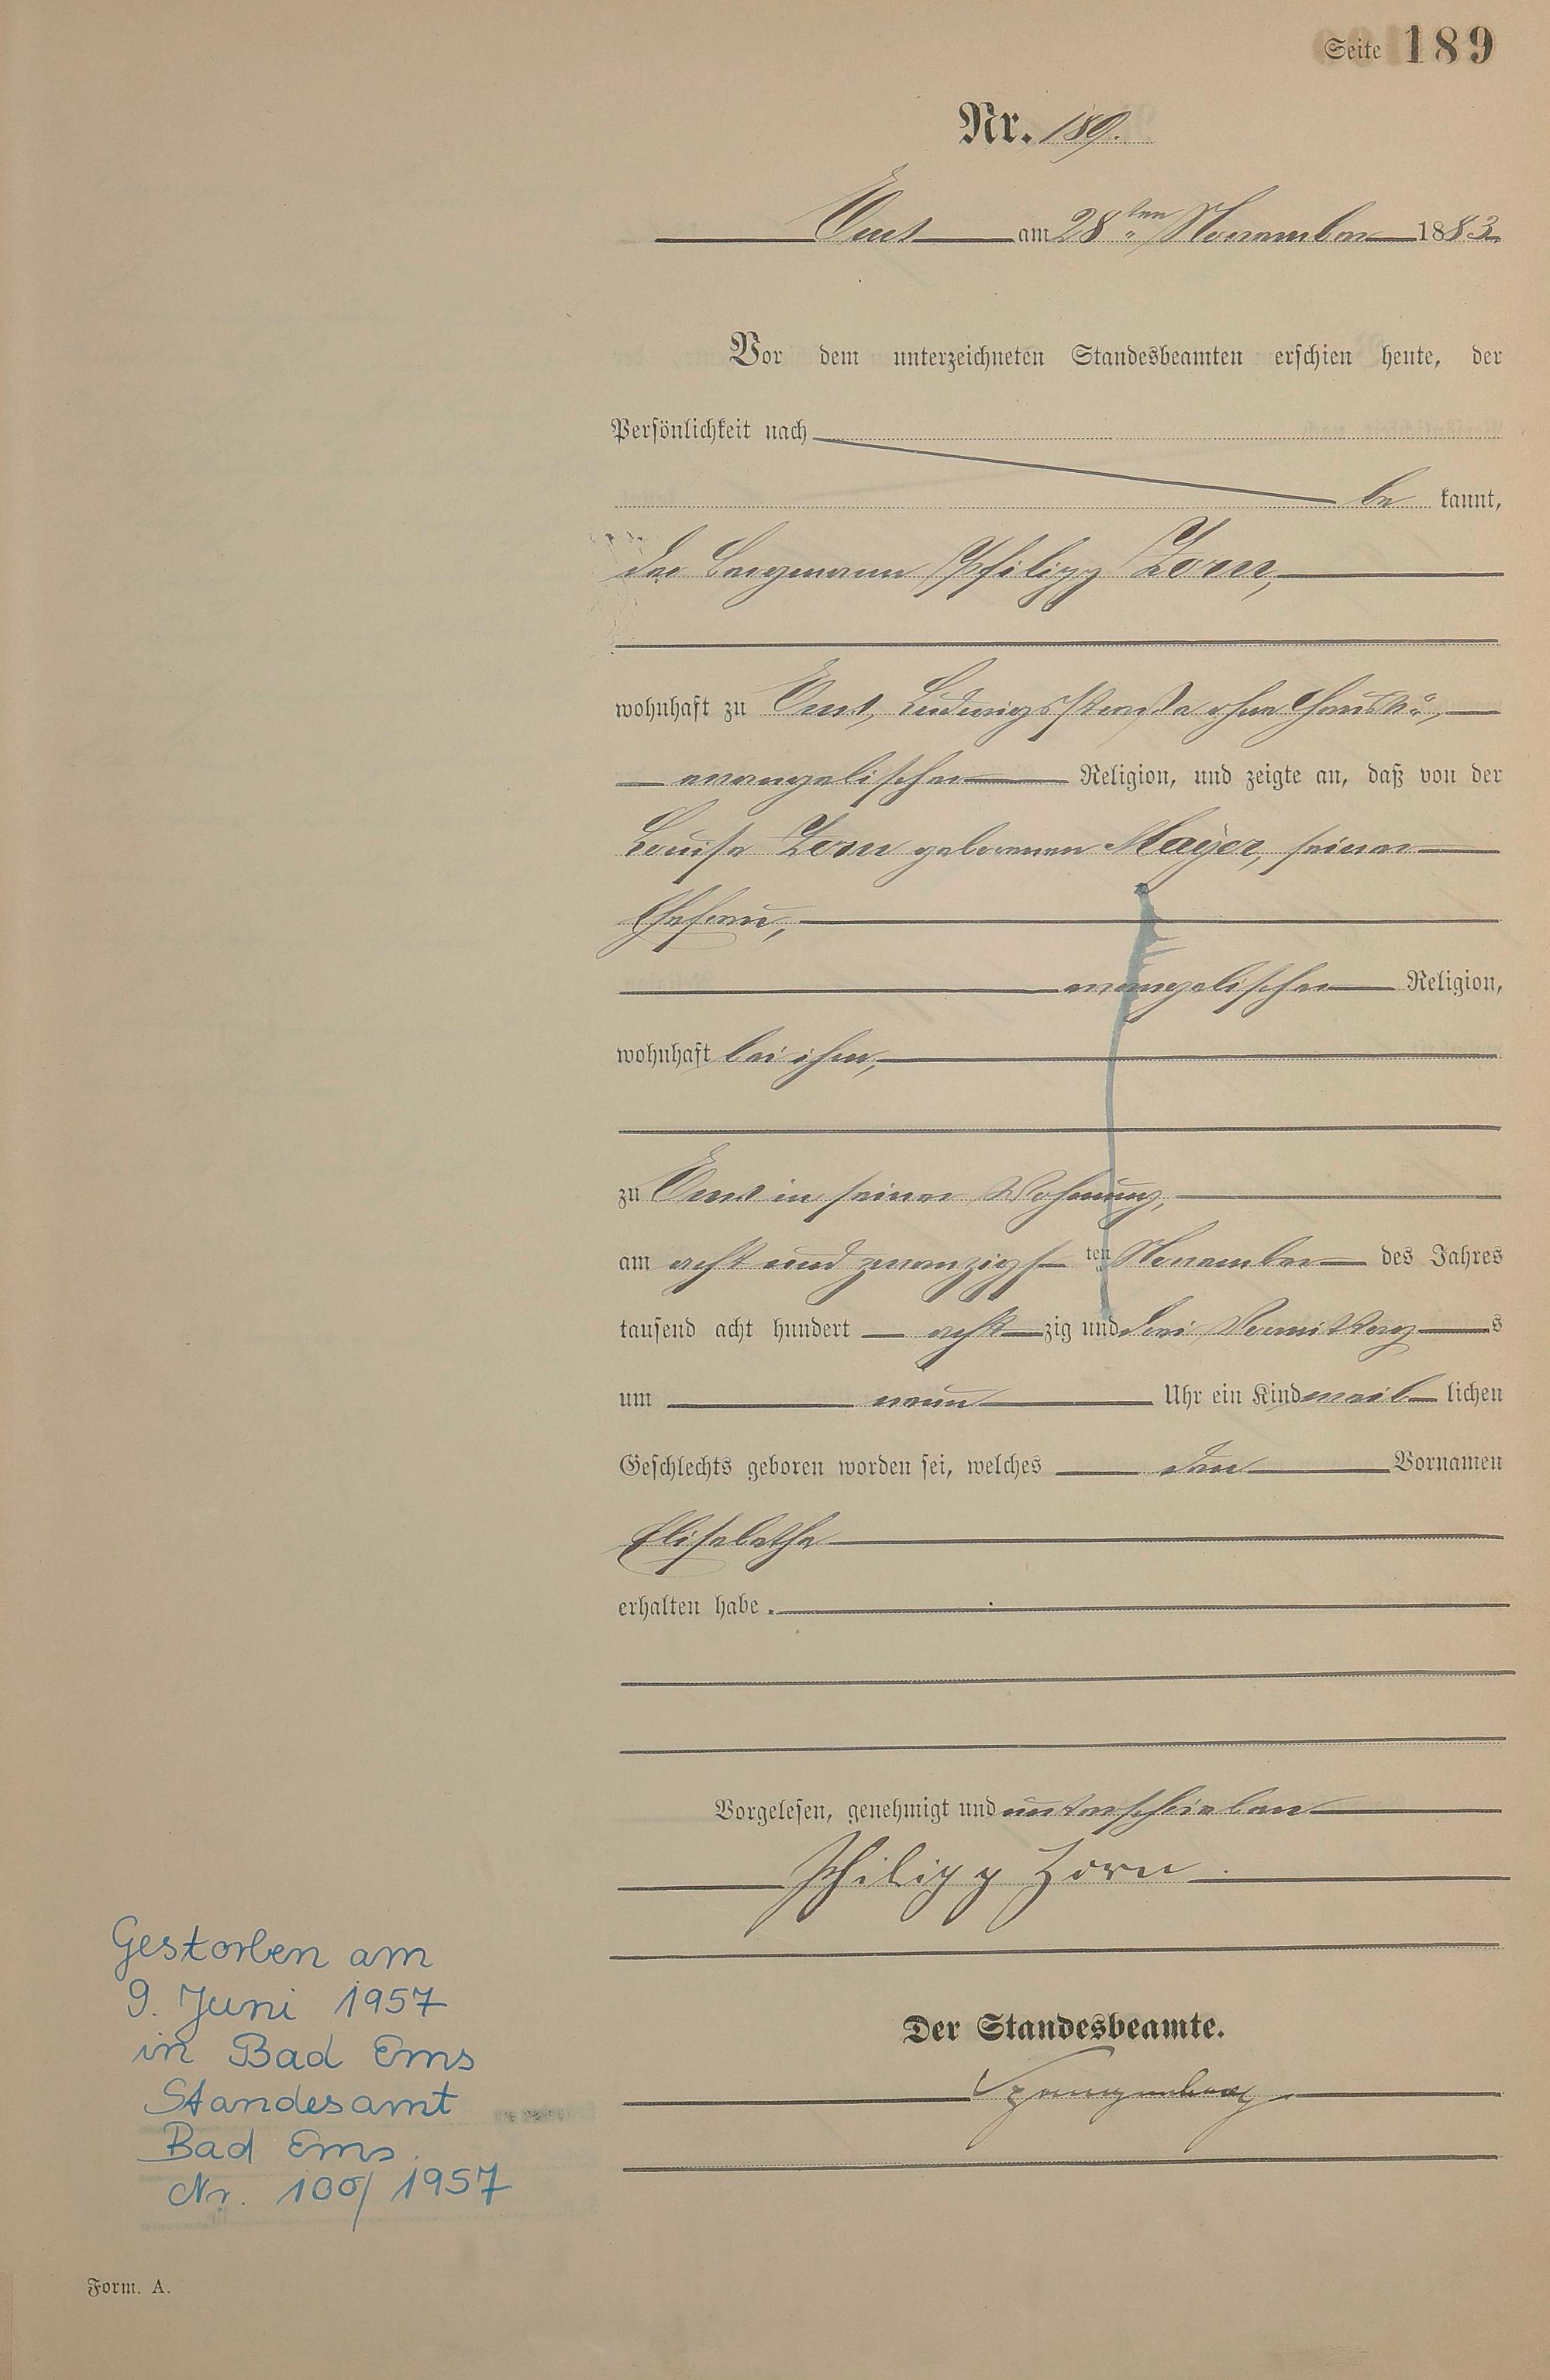 Seite 189
Nr. 189.
Ems am 28ten November 1883.
Vor dem unterzeichneten Standesbeamten erschien heute, der
Persönlichkeit nach
be kannt,
der Bergmann Philipp Zorn,
wohnhaft zu Ems, Ludwigsstraße ohne Haus No,
evangelischer Religion, und zeigte an, daß von der
Louise Zorn geborenen Mayer, seiner
Ehefrau,
evangelischer Religion,
wohnhaft bei ihm,
zu Ems in seiner Wohnung,
am acht und zwanzigsten November des Jahres
tausend acht hundert achtzig und drei Vormittags
um neun Uhr ein Kind weiblichen
Geschlechts geboren worden sei, welches den Vornamen
Elisabetha
erhalten habe.
Vorgelesen, genehmigt und unterschrieben
Philipp Zorn.
Gestorben am
9. Juni 1957
in Bad Ems
Standesamt
Bad Ems
Nr. 100/1957
Der Standesbeamte.
Spangenberg
Form. A.